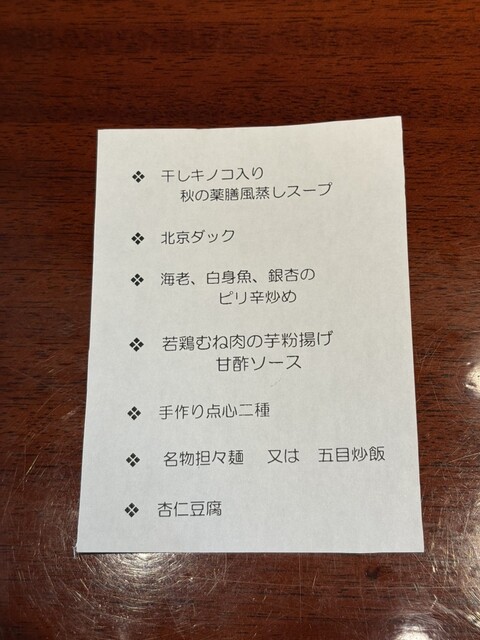 ❖ 干しキノコ入り
秋の薬膳風蒸しスープ
❖ 北京ダック
❖ 海老、白身魚、銀杏の
ピリ辛炒め
❖ 若鶏むね肉の芋粉揚げ
甘酢ソース
❖ 手作り点心二種
❖ 名物担々麺 又は 五目炒飯
❖ 杏仁豆腐